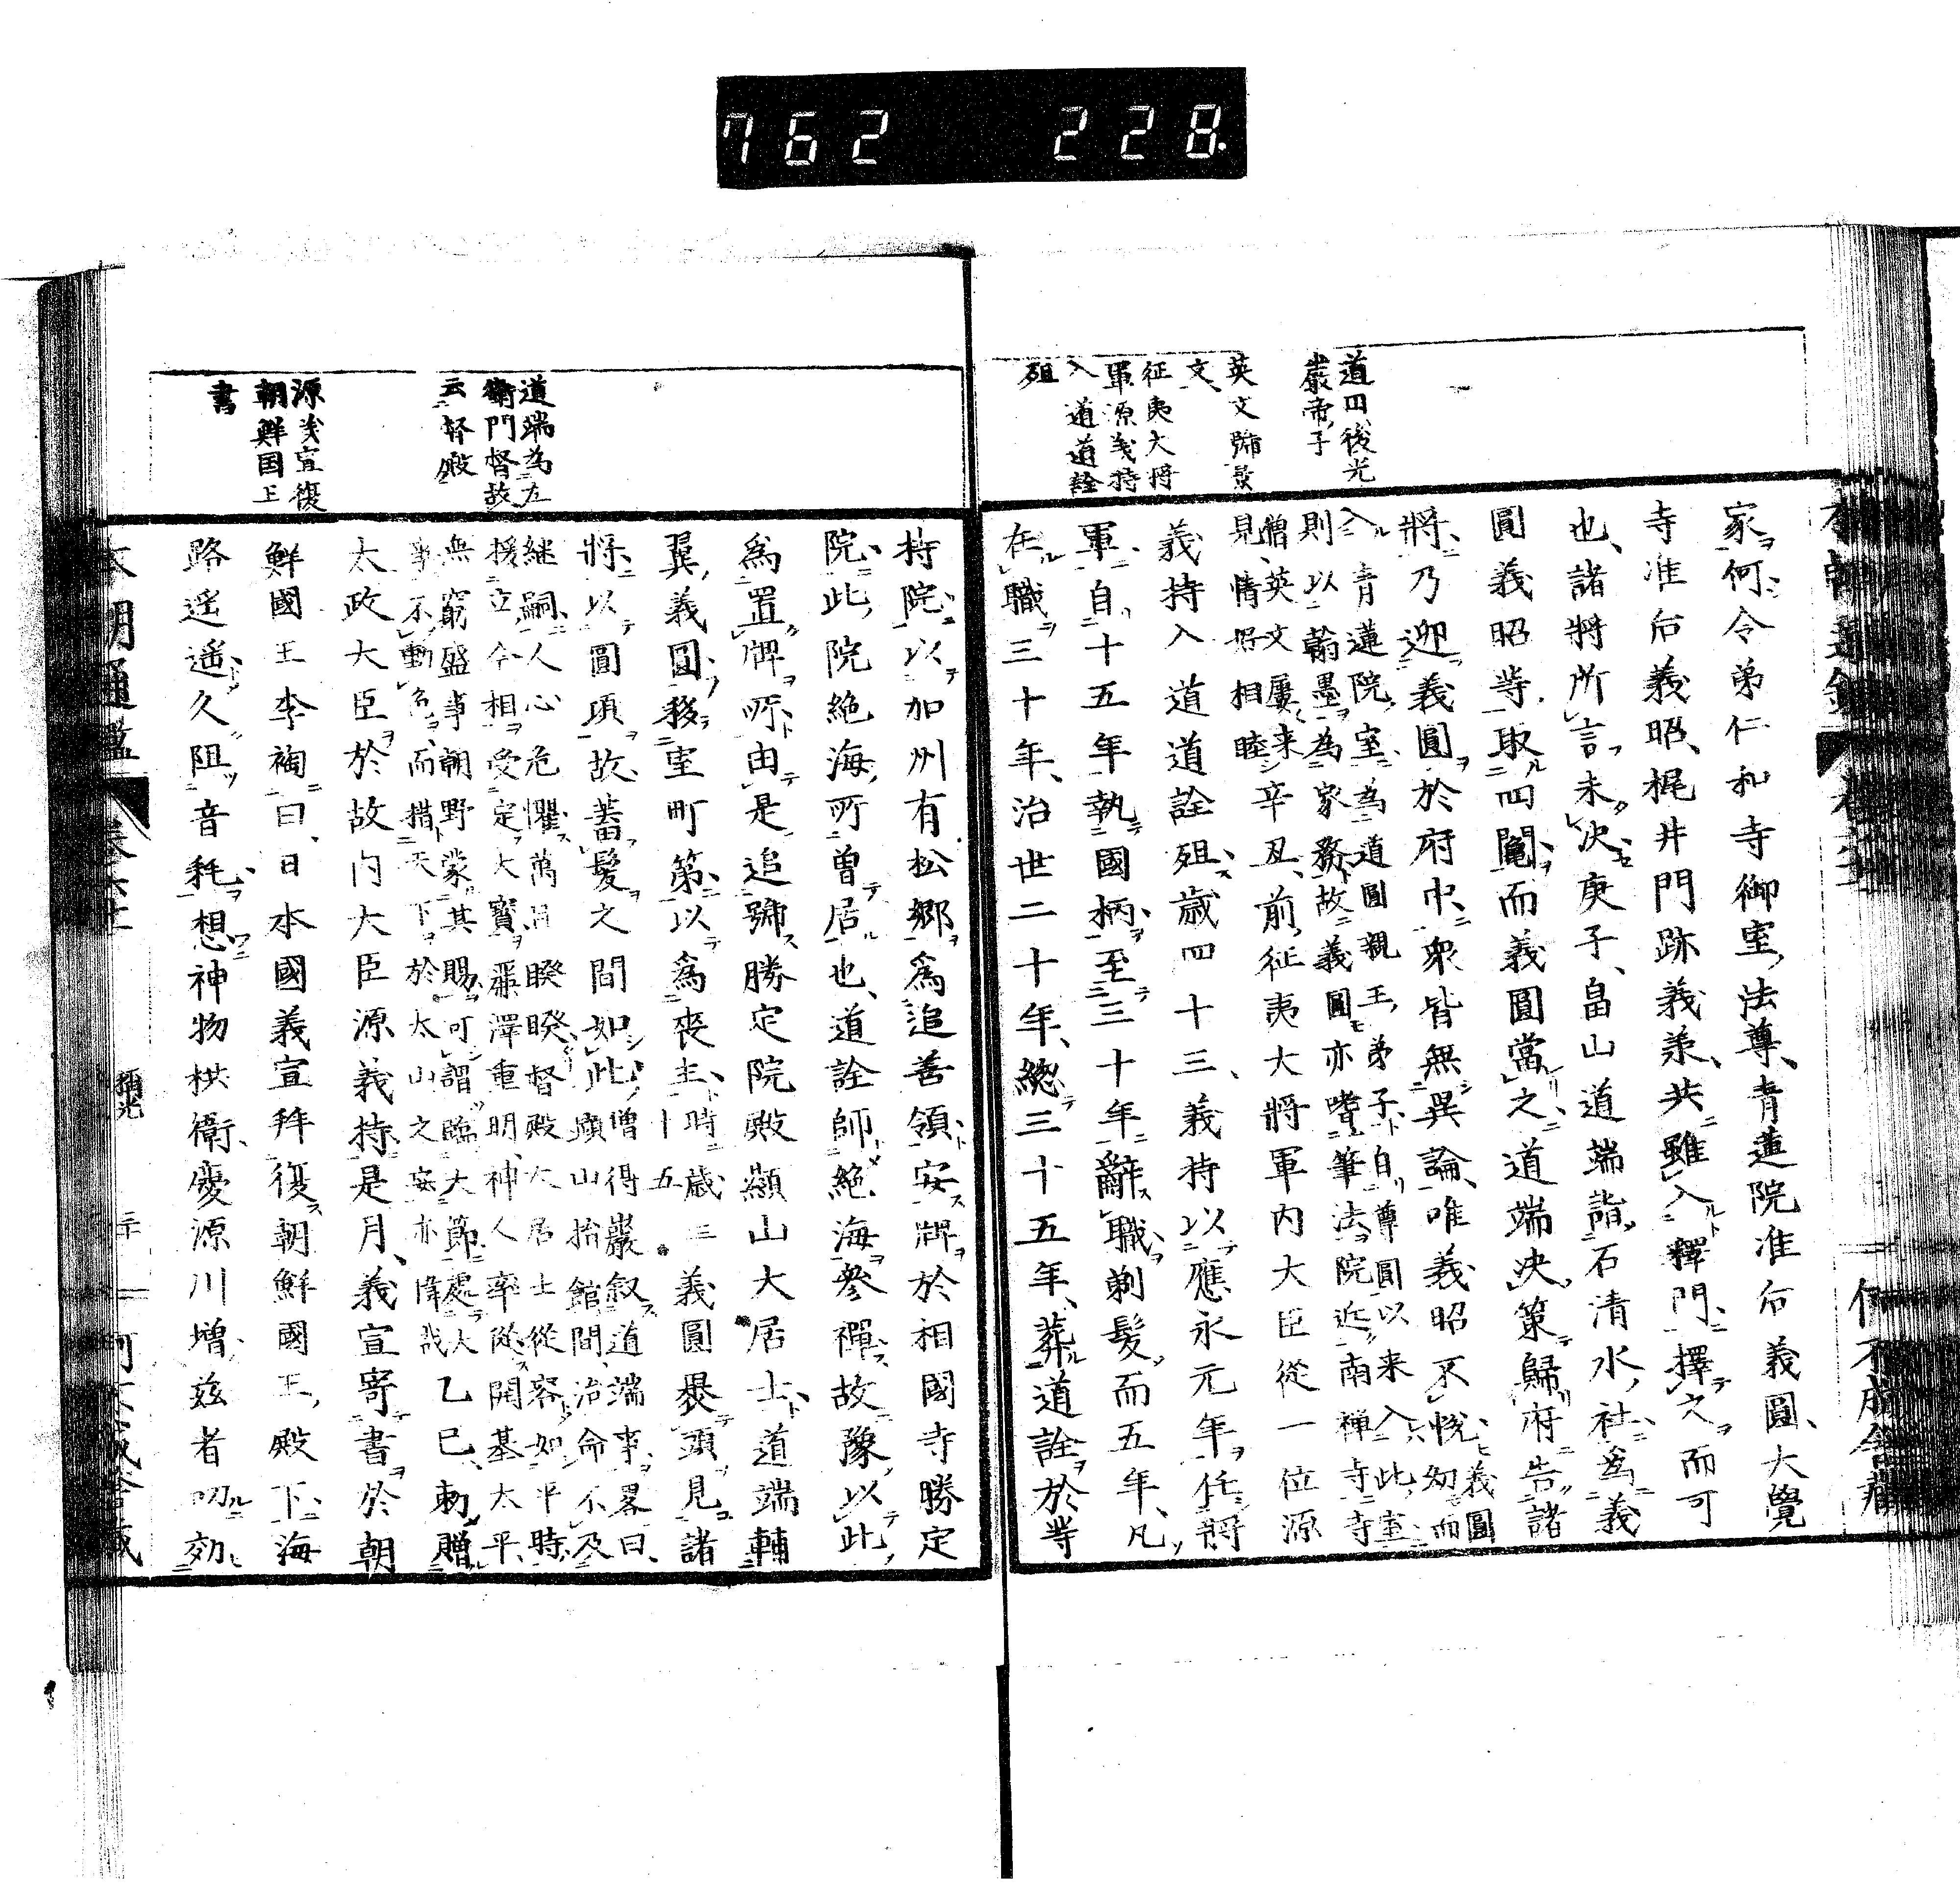 762 228
道円、後光
嚴帝、子
英文號景
文、
征夷大将
軍源義持
入道道詮
殂
家何令弟仁和寺御室法尊、青蓮院准后義圓、大覺
寺准后義昭、梶井門跡義羕、共雖入釋門擇之而可
也、諸将所言未決、庚子、畠山道端詣石清水社為義
圓義昭䓁取四鬮而義圓當之、道端决策歸府告諸
將乃迎義圓於府中、衆皆無異論、唯義昭不悦、匆而義圓
入青蓮院室、為道圓親王弟子、自尊圓以来入此室
則以翰墨為家務、故義圓亦嗜筆法、院近南禅寺、寺
僧英文屢来
見、情好相睦
辛丑、前征夷大將軍内大臣從一位源
義持入道道詮殂、歳四十三、義持以應永元年任將
軍、自十五年執國柄、至三十年辭職剃髪、而五年、凡
在職三十年、治世二十年、總三十五年、葬道詮於䓁
道端為左
衛門督故
云督殿
源義宣復
朝鮮国王
書
持院、以加州有松郷為追善領、安牌於相國寺勝定
院、此院絶海所曽居也、道詮師絶海參禪、故豫以此
為置牌所、由是追號勝定院殿顯山大居士、道端輔
翼義圓、移室町第、以為喪主、時歳三十五
義圓褁頭見諸
將、以圓頂故、蓄髪之間如此、
僧得巖叙道端事畧曰、
顯山拾館間、治命不及
継嗣、人心危懼、萬目睽睽、督殿大居士從容如平時、
援立今相、受定大寳、澤重明、神人率從、開基太平、
無窮盛事、朝野蒙其賜、可謂臨大節處大
事、不動色、而措天下於太山之安、亦偉哉
乙巳、勅贈
太政大臣於故内大臣源義持、是月、義宣寄書於朝
鮮國王李裪曰、日本國義宣拜復朝鮮國王殿下、海
路遥遥、久阻音耗、想神物拱衛、慶源川増、兹者叨効
本朝通鑑